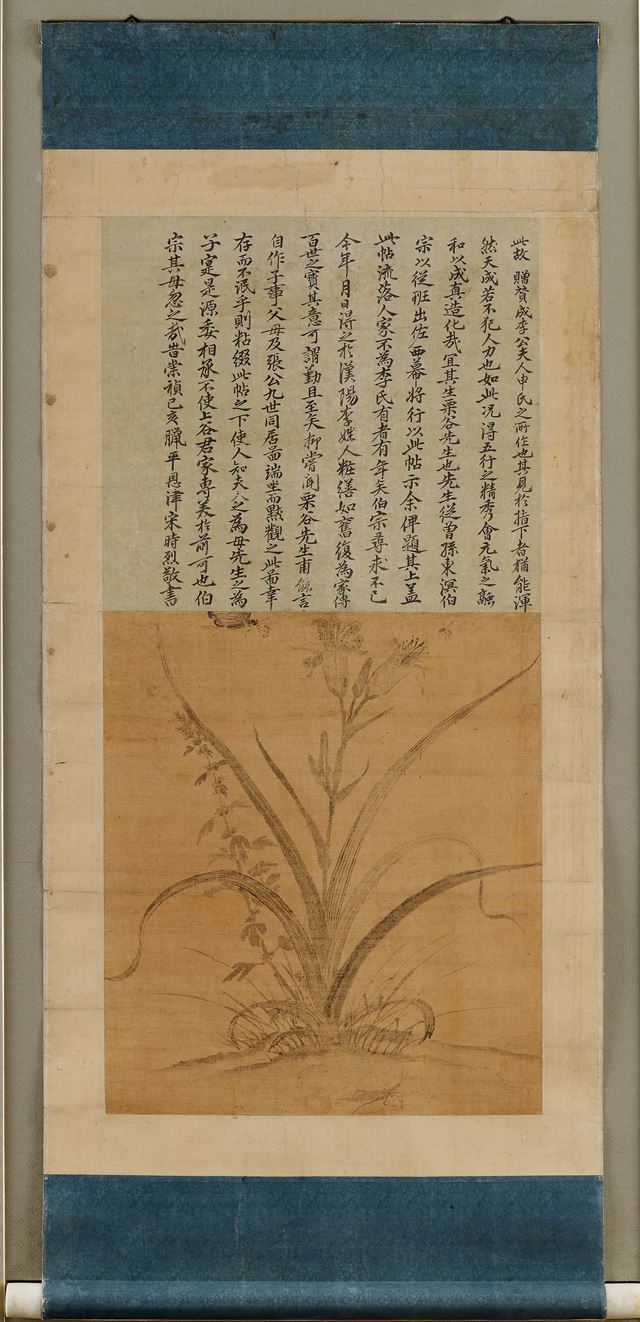 此故 贈贊成李公夫人申氏之所作也其見於指下者猶能渾
然天成若不犯人力也如此況得五行之精秀會元氣之融
和以成真造化哉宜其生栗谷先生也先生從曾孫東溟伯
宗以從班出佐西幕將行以此帖示余俾題其上蓋
此帖流落人家不為李氏有者有年矣伯宗尋求不已
今年月日得之於漢陽李姓人粧繕如舊復為家傳
百世之寶其意可謂勤且至矣抑嘗聞栗谷先生甫能言
自作子事父母及張公九世同居啚端坐而默觀之此啚幸
存而不泯乎則粘綴此帖之下使人知夫人之為母先生之為
子寔是源委相承不使上谷君家專美於前可也伯
宗其毋忽之哉旹崇禎己亥臘平恩津宋時烈敬書